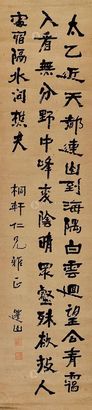 太乙近天都連山到海隅白雲迴望合青靄
入看無分野中峰變陰晴眾壑殊欲投人
處宿隔水問樵夫
桐軒仁兄雅正